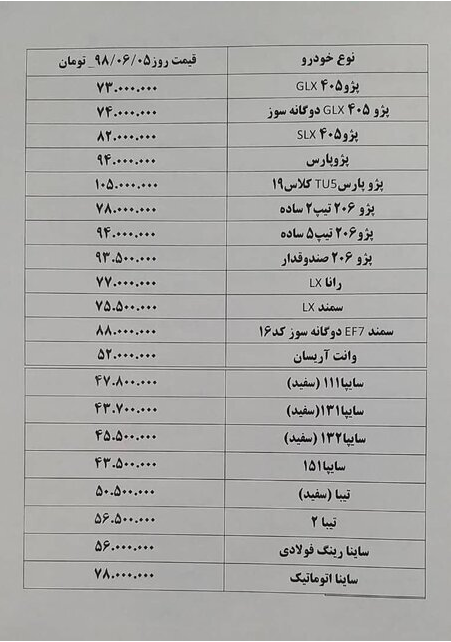 نوع خودرو قیمت روز۹۸/۰۶/۰۵_ تومان
پژو۴۰۵ GLX ۷۳.۰۰۰.۰۰۰
پژو ۴۰۵ GLX دوگانه سوز ۷۴.۰۰۰.۰۰۰
پژو۴۰۵ SLX ۸۲.۰۰۰.۰۰۰
پژوپارس ۹۴.۰۰۰.۰۰۰
پژو پارسTU5 کلاس۱۹ ۱۰۵.۰۰۰.۰۰۰
پژو ۲۰۶ تیپ۲ ساده ۷۸.۰۰۰.۰۰۰
پژو۲۰۶ تیپ۵ ساده ۹۴.۰۰۰.۰۰۰
پژو ۲۰۶ صندوقدار ۹۳.۵۰۰.۰۰۰
رانا LX ۷۷.۰۰۰.۰۰۰
سمند LX ۷۵.۵۰۰.۰۰۰
سمند EF7 دوگانه سوز کد۱۶ ۸۸.۰۰۰.۰۰۰
وانت آریسان ۵۲.۰۰۰.۰۰۰
سایپا۱۱۱ (سفید) ۴۷.۸۰۰.۰۰۰
سایپا۱۳۱(سفید) ۴۳.۷۰۰.۰۰۰
سایپا۱۳۲ (سفید) ۴۵.۵۰۰.۰۰۰
سایپا۱۵۱ ۴۳.۵۰۰.۰۰۰
تیبا (سفید) ۵۰.۵۰۰.۰۰۰
تیبا ۲ ۵۶.۵۰۰.۰۰۰
ساینا رینگ فولادی ۵۶.۰۰۰.۰۰۰
ساینا اتوماتیک ۷۸.۰۰۰.۰۰۰